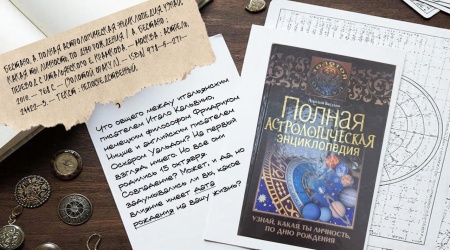 Бестазо, А. Полная астрологическая энциклопедия. Узнай,
какая ты личность, по дню рождения / А. Бестазо ;
перевод с итальянского Е. Тарасова. – Москва : Астрель,
2012. – 768 с. – (Золотой Оракул) – ISBN 978-5-271-
– Текст : непосредственный.
Что общего между итальянским
писателем Итало Кальвино,
немецким философом Фридрихом
Ницше и английским писателем
Оскаром Уайльдом? На первый
взгляд, ничего. Но все они
родились 15 октября.
Совпадение? Может, и да, но
задумывались ли вы, какое
влияние имеет дата
рождения на вашу жизнь?
Полная
астрологическая
энциклопедия
УЗНАЙ, КАКАЯ ТЫ ЛИЧНОСТЬ,
ПО ДНЮ РОЖДЕНИЯ